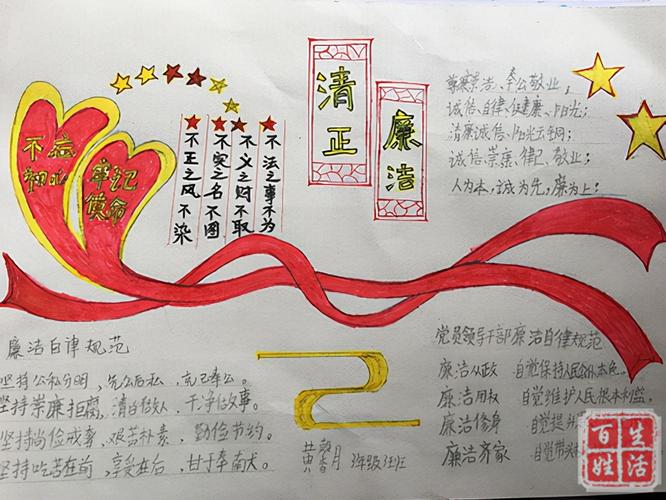 不忘
初心
牢记
使命
清正
廉洁
不法之事不为
不义之财不取
不实之名不图
不正之风不染
尊廉崇洁、奉公敬业；
诚信、自律、促健康、阳光；
清廉诚信、阳光
诚信崇廉、律己、敬业；
人为本，诚为先，廉为上；
廉洁自律规范
坚持公私分明，先公后私，克己奉公。
坚持崇廉拒腐，清白做人，干净做事。
坚持尚俭戒奢，艰苦朴素，勤俭节约。
坚持吃苦在前，享受在后，甘于奉献。
党员领导干部廉洁自律规范
廉洁从政 自觉保持人民公仆本色。
廉洁用权 自觉维护人民根本利益。
廉洁修身 自觉提升
廉洁齐家 自觉带头
黄 月
百姓生活